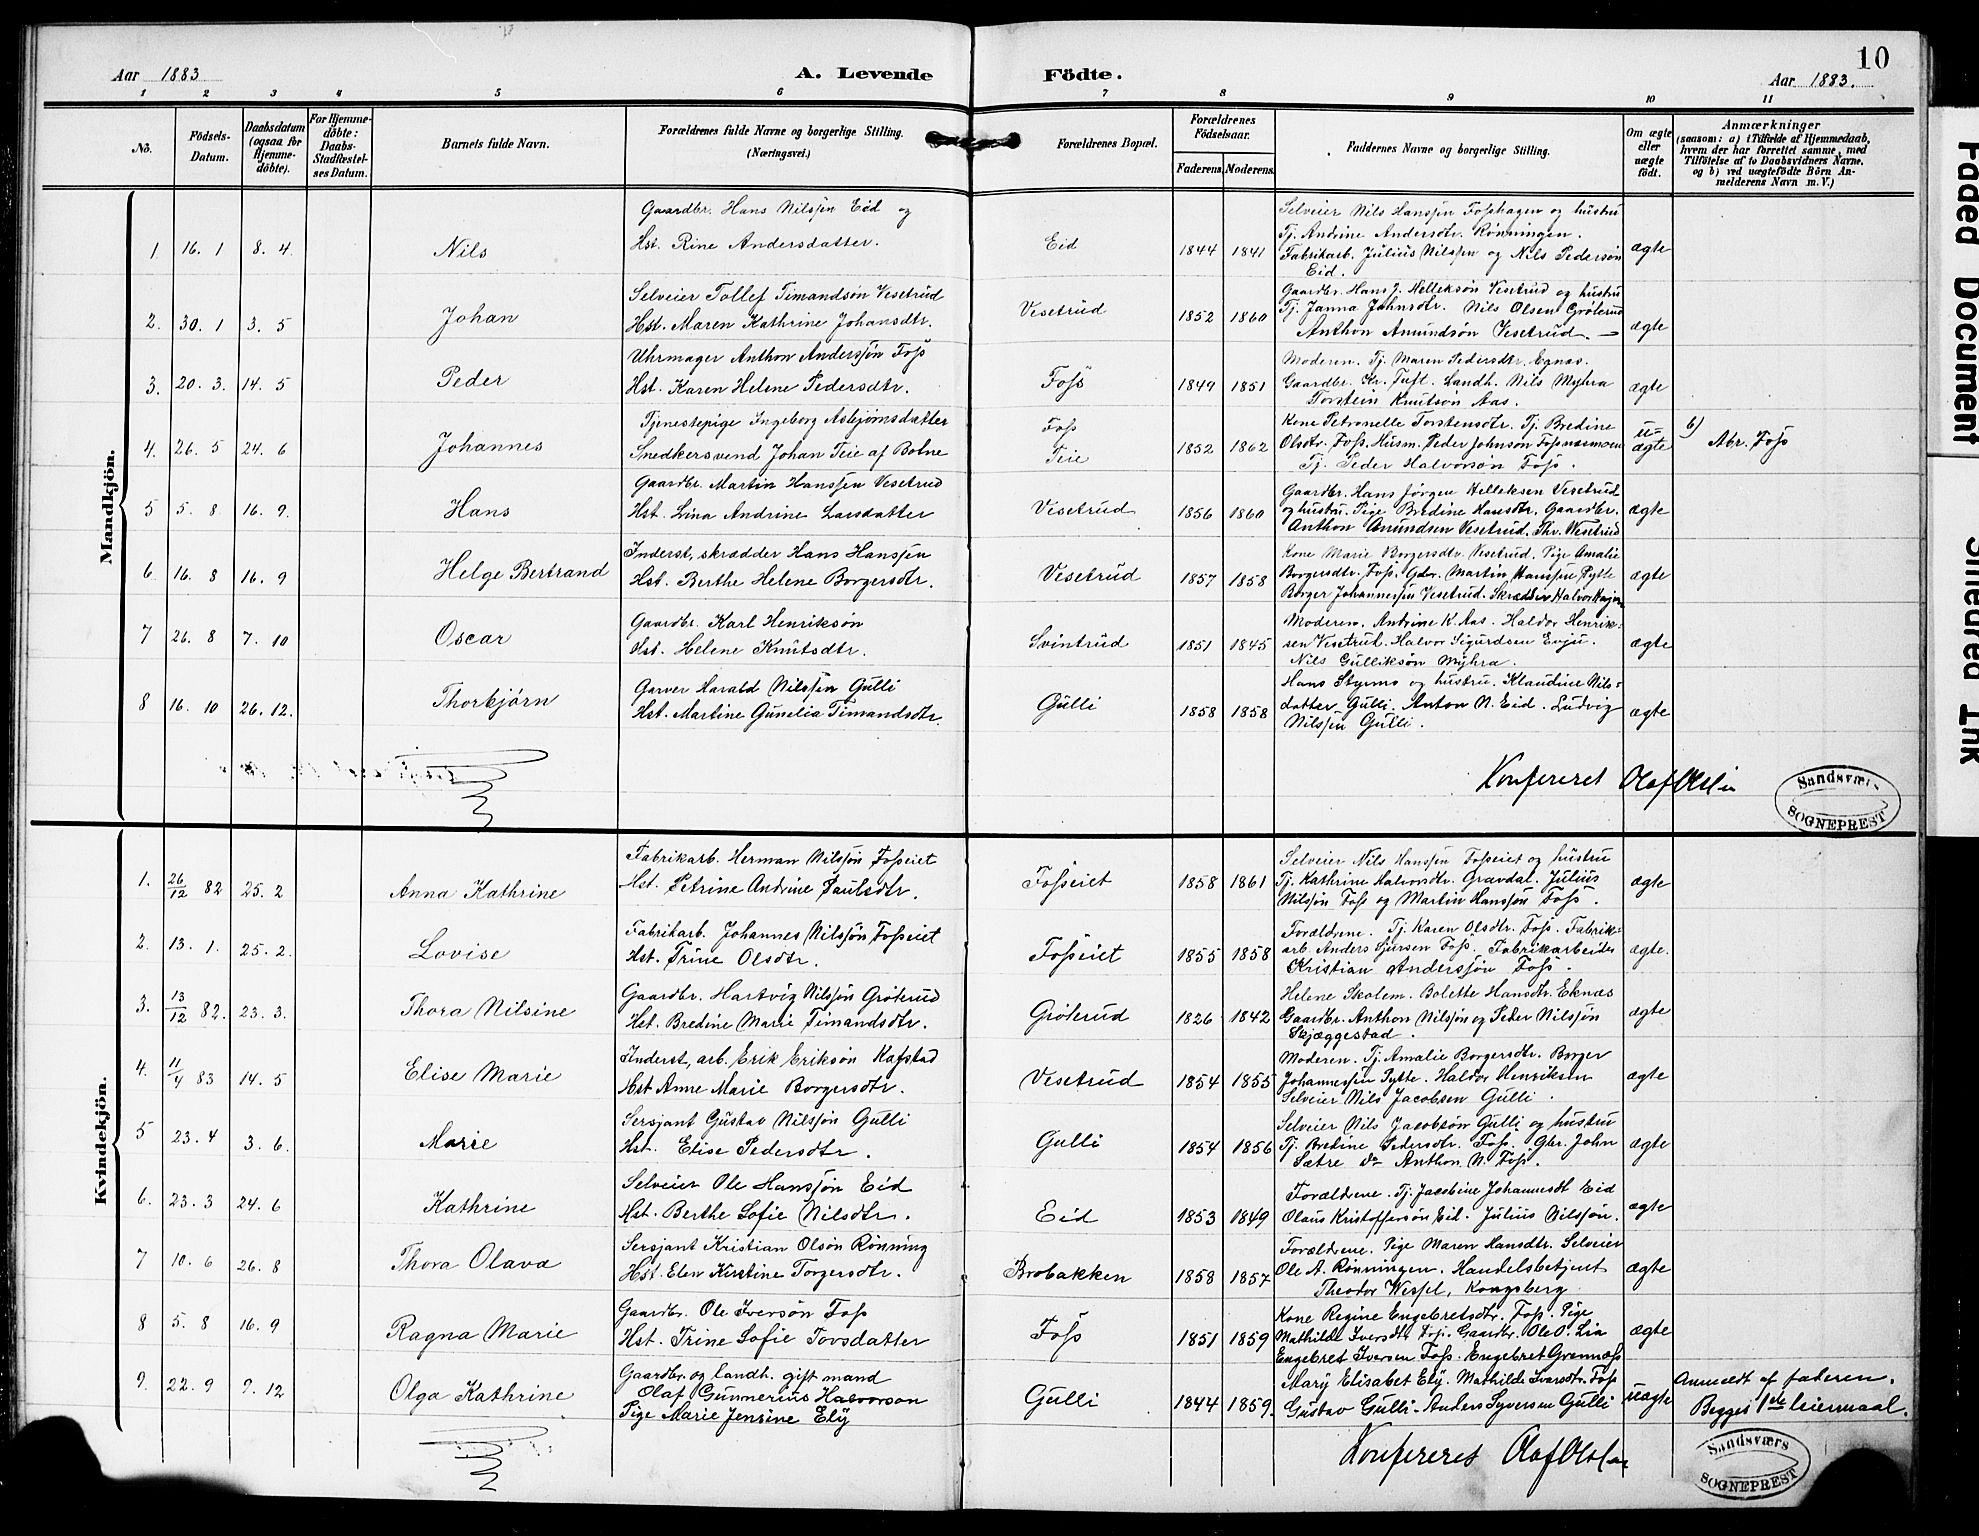 10
Aar 1883
A. Levende Födte.
Aar 1883.
1 2 3 4 5 6 7 8 9 10 11
No.
Födsels-Datum.
Daabsdatum (ogsaa for Hjemme-döbte).
For Hjemme-döbte: Daabs-Stadfæstel-ses Datum.
Barnets fulde Navn.
Forældrenes fulde Navne og borgerlige Stilling.
(Næringsvei.)
Forældrenes Bopæl.
Forældrenes Födselsaar.
Faderens. Moderens.
Faddernes Navne og borgerlige Stilling.
Om ægte eller uægte födt.
Anmærkninger
(saasom: a) i Tilfælde af Hjemmedaab,
hvem der har forrettet samme, med
Tilföielse af to Daabsvidners Navne,
og b) ved uægtefödte Börn An-
melderens Navn m. V.)
Mandkjön.
1 16. 1 8. 4 Nils
Gaardbr. Hans Nilssen Eid og
Hst. Rine Andersdatter.
Eid 1844 1841
Selveier Nils Hanssen Fosshagen og hustru
Tj. Andrine Andersdtr. Rønningen.
Fabrikarb. Julius Nilssen og Nils Pedersøn
Eid.
ægte
2. 30. 1 3. 5 Johan
Selveier Tollef Timandsøn Vesetrud
Hst. Maren Kathrine Johansdtr.
Vesetrud 1852 1860
Gaardbr. Hans J. Helleksøn Vesetrud og hustru
Tj. Janna Johnsdtr. Nils Olsen Grøterud
Anthon Amundsøn Vesetrud. —
ægte
3. 20. 3. 14. 5 Peder
Uhrmager Anthon Anderssøn Foss
Hst. Karen Helene Pedersdtr.
Foss 1849 1851
Moderen. Tj. Maren Pedersdtr. Egnas.
Gaardbr. Kr. Tuft. Landh. Nils Myhra
Torstein Knutsøn Aas.
ægte
4. 26. 5 24. 6 Johannes
Tjenestepige Ingeborg Asbjørnsdatter
Snedkersvend Johan Teie af Botne
Foss
Teie
1852 1862
Kone Petronelle Torstensdtr. Tj. Bredine
Olsdtr. Foss. Husm. Peder Johnsøn Fossnæsmoen
Tj. Peder Halvorsøn Foss.
u-
ægte
b) Abr. Foss
5 5. 8 16. 9. Hans
Gaardbr. Martin Hanssen Vesetrud
Hst. Lina Andrine Larsdatter
Vesetrud 1856 1860
Gaardbr. Hans Jørgen Helleksen Vesetrud
og hustru. Pige Bredine Hansdtr. Gaardbr.
Anthon Amundsen Vesetrud. Thv. Vesetrud
ægte
6. 16. 8 16. 9 Helge Bertrand
Inderst, skrædder Hans Hanssen
Hst. Berthe Helene Borgersdtr.
Vesetrud 1857 1858
Kone Marie Borgersdtr. Vesetrud. Pige Amalie
Borgersdtr. Foss. Gdbr. Martin Hanssen Pytte
Borger Johannessen Vesetrud. Skrædder Halvor
ægte
7 26. 8 7. 10 Oscar
Gaardbr. Karl Henriksøn
Hst. Helene Knutsdtr.
Svintrud 1851 1845
Moderen. Andrine K. Aas. Haldor Henrik-
sen Vesetrud. Halvor Sigurdsen Evju.
Nils Gulliksøn Myhra.
ægte
8 16. 10 26. 12. Thorbjørn
Garver Harald Nilssen Gulli
Hst. Martine Gunelia Timandsdtr.
Gulli 1858 1858
Hans Styrmo og hustru. Klaudine Nils-
datter Gulli. Anton N. Eid. Ludvig
Nilssen Gulli.
ægte
Konfereret Olaf Olsen
Sandsværs
SOGNEPREST
Kvindekjön.
1. 26/12 82 25. 2 Anna Kathrine
Fabrikarb. Herman Nilssøn Fosseiet
Hst. Petrine Andrine Paulsdtr.
Fosseiet 1858 1861
Selveier Nils Hanssen Fosseiet og hustru
Tj. Kathrine Halvorsdtr. Gravdal. Julius
Nilssøn Foss og Martin Hanssøn Foss.
ægte
2. 13. 1. 25. 2. Lovise
Fabrikarb. Johannes Nilssøn Fosseiet
Hst. Trine Olsdtr.
Fosseiet 1855 1858
Forældrene. Tj. Karen Olsdtr. Foss. Fabrik-
arb. Anders Sjursen Foss. Fabrikarbeider
Kristian Anderssøn Foss.
ægte.
3. 13/12 82. 23. 3. Thora Nilsine
Gaardbr. Hartvig Nilssøn Grøterud
Hst. Bredine Marie Timandsdtr.
Grøterud 1826 1842
Helene Skolem. Bolette Hansdtr. Eknæs
Gaardbr. Anthon Nilssøn og Peder Nilssøn
Skjæggestad.
ægte
4. 11/4 83 14. 5 Elise Marie
Inderst, arb. Erik Eriksøn Kafstad
Hst Anne Marie Borgersdtr.
Vesetrud 1854 1855
Moderen. Tj. Amalie Borgersdtr. Borger
Johannessen Pytte. Haldor Henriksen
Selveier Nils Jacobsen Gulli.
ægte
5 23. 4 3. 6. Marie
Sersjant Gustav Nilssøn Gulli
Hst. Elise Pedersdtr.
Gulli 1854 1856
Selveier Nils Jacobsøn Gulli og hustru
Tj. Bredine Pedersdtr. Foss. Gbr. John
Sætre Do Anthon N. Foss.
ægte
6. 23. 3 24. 6 Kathrine
Selveier Ole Hanssøn Eid
Hst. Berthe Sofie Nilsdtr.
Eid 1853 1849
Forældrene. Tj. Jacobine Johannesdt Eid
Olaus Kristoffersøn Eid. Julius Nilssøn.
ægte
7 10. 6 26. 8 Thora Olava
Sersjant Kristian Olsøn Rønning
Hst. Elen Kirstine Torgersdtr.
Brobakken 1858 1857
Forældrene. Pige Maren Hansdtr. Selveier
Ole A. Rønningen. Handelsbetjent
Theodor Wessel, Kongsberg.
ægte
8 5. 8 16. 9 Ragna Marie
Gaardbr. Ole Iversøn Foss
Hst. Trine Sofie Tovsdatter
Foss 1851 1859
Kone Regine Engebretsdtr. Foss. Pige
Mathilde Iversdtr. Foss. Gaardbr. Ole O. Lia
Engebret Iversen Foss. Engebret Grønnæss
ægte
9. 22. 9 9. 12 Olga Kathrine
Gaardbr. og landh. gift mand
Olaf Gunnerius Halvorson
Pige Marie Jensine Ely
Gulli 1844 1859.
Mary Elisabet Ely. Mathilde Ivarsdtr. Foss
Gustav Gulli. Anders Syversen Gulli
uægte
Anmeldt af faderen.
Begges 1ste leiermaal.
Konfereret Olaf Olsen
Sandsværs
SOGNEPREST
Faded Document
Smeared Ink